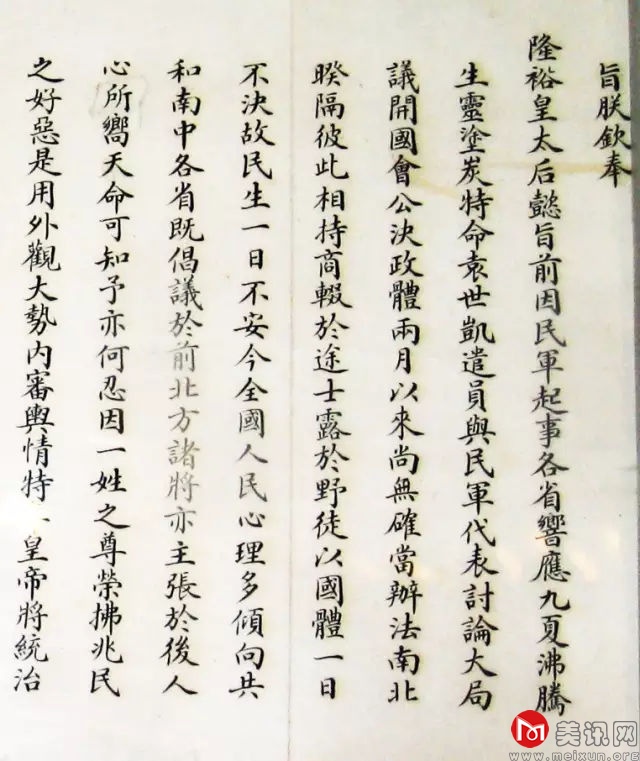 旨朕欽奉
隆裕皇太后懿旨前因民軍起事各省響應九夏沸騰
生靈塗炭特命袁世凱遣員與民軍代表討論大局
議開國會公決政體兩月以來尚無確當辦法南北
暌隔彼此相持商輟於途士露於野徒以國體一日
不決故民生一日不安今全國人民心理多傾向共
和南中各省既倡議於前北方諸將亦主張於後人
心所嚮天命可知予亦何忍因一姓之尊榮拂兆民
之好惡是用外觀大勢內審輿情特皇帝將統治
美讯网
www.meixun.org